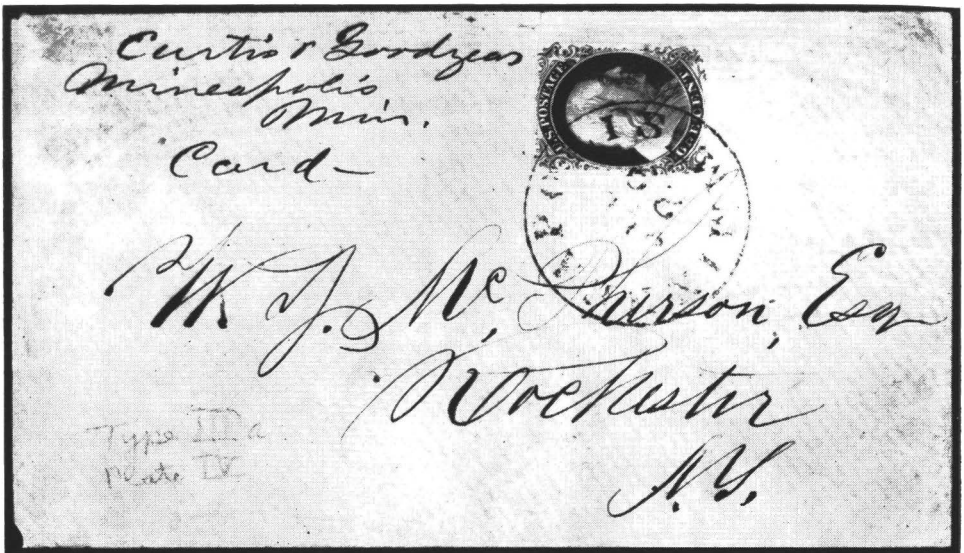 Curtis & Goodyear
Mineapolis
Min.
Card -
U.S. POSTAGE
W. J. McPherson, Esq
Rochester
N.Y.
Type III a
Plate IV